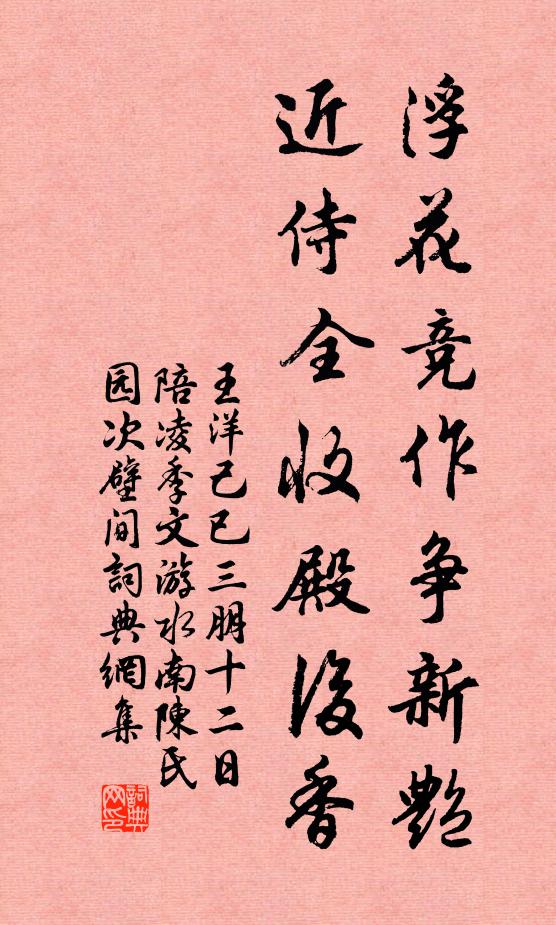 浮花竞作争新艶
近侍全收殿後香
王洋己巳三朋十二日
陪凌季文游水南陳氏
园次壁间詞典網集
詞典网印